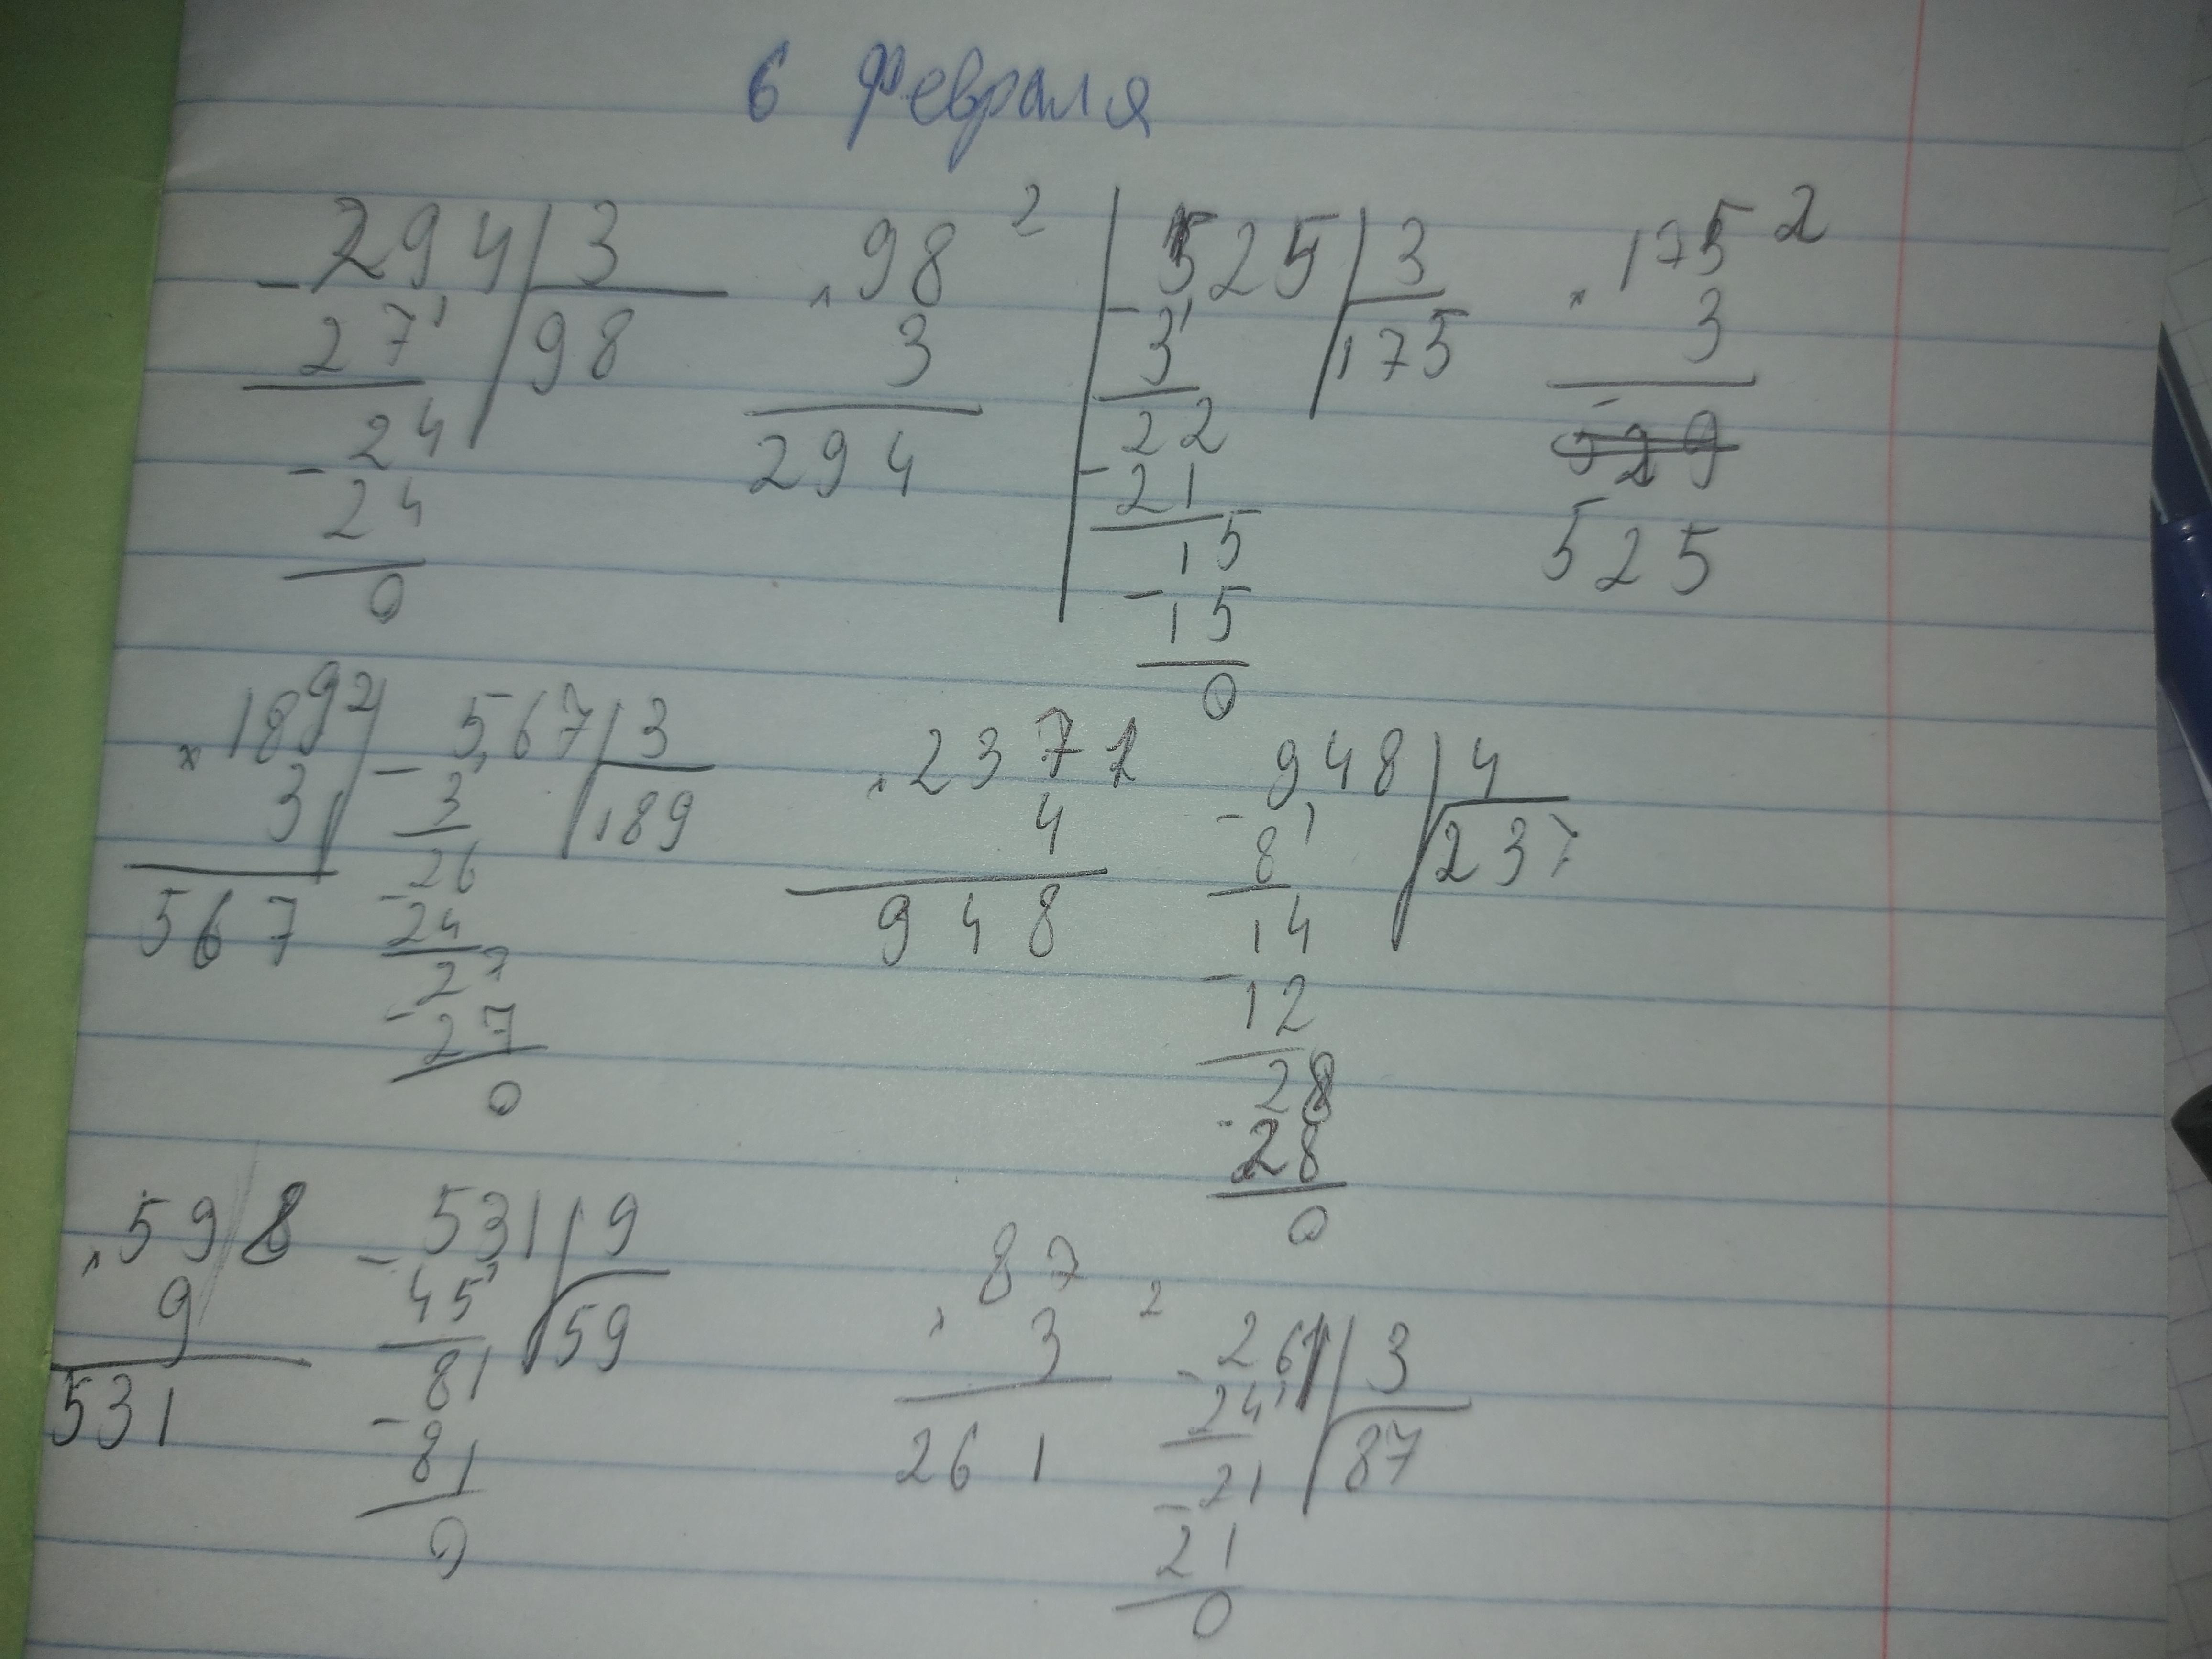 6 Февраля
- 294 | 3   × 98 ²   - 525 | 3   × 175 ²
27'   98   3   3'   175   3
- 24   294   22   ~~529~~
24   - 21   525
0   15
- 15
0
× 189 2   - 567 | 3   × 237 2   - 948 | 4
3   3'   189   4   8'   237
567   26   948   14
- 24   - 12
27   28
- 27   - 28
0   0
× 59 8   - 531 | 9   × 87 2   - 261 | 3
9   45'   59   3   24'   87
531   81   261   21
- 81   - 21
0   0